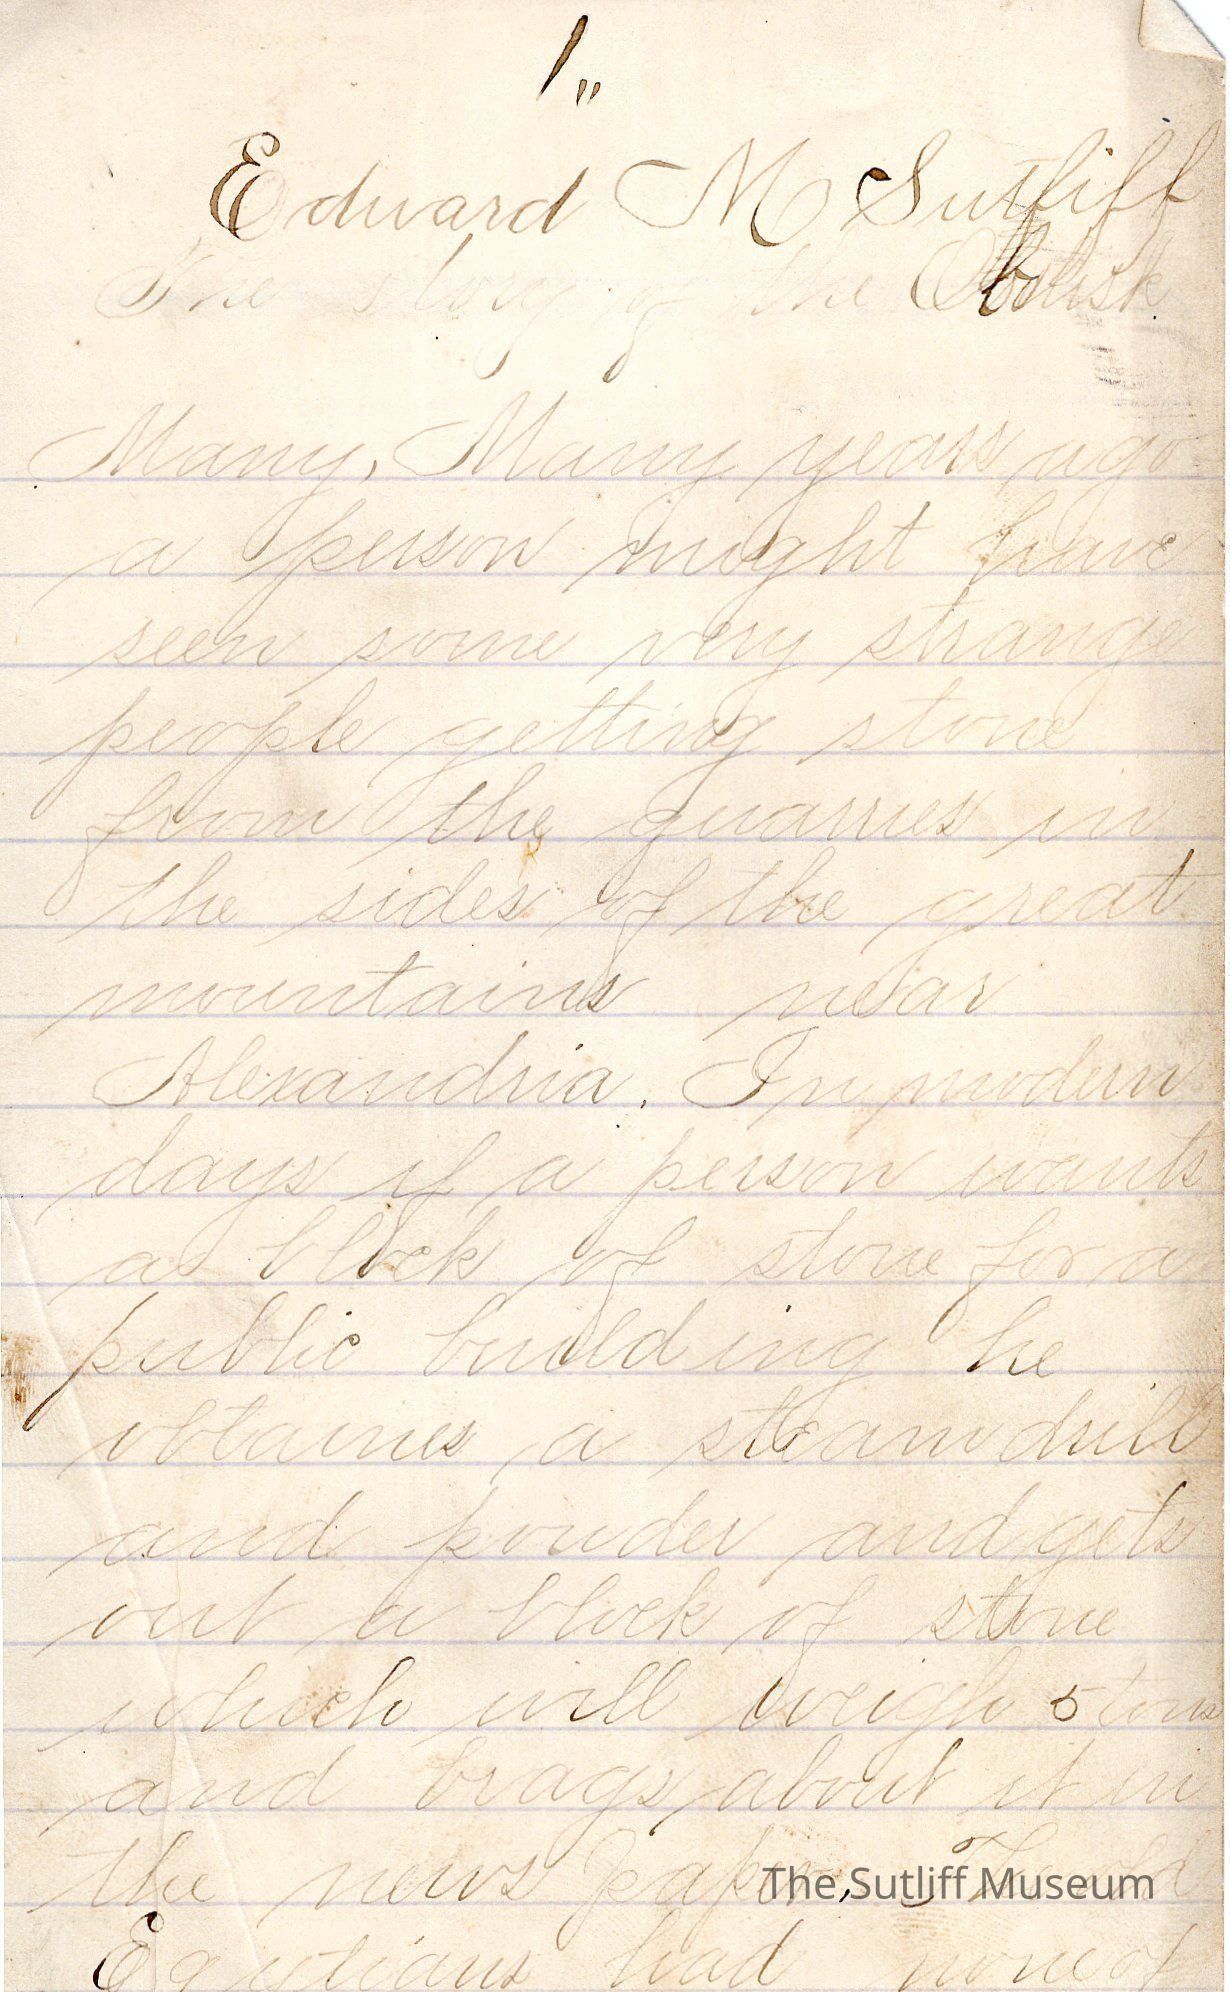 1"
Edward M Sutliff
The story of the Obelisk
Many, Many years ago
a person might have
seen some very strange
people getting stone
from the quarries in
the sides of the great
mountains near
Alexandria. In modern
days if a person wants
a block of stone for a
public building he
obtaines a steam drill
and powder and gets
out a block of stone
which will weigh 5 tons
and brags about it in
the news paper,
The Sutliff Museum
had none of